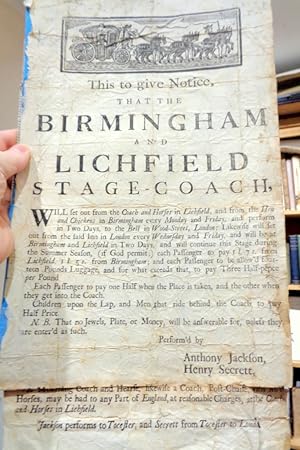 This to give Notice,
THAT THE
BIRMINGHAM
AND
LICHFIELD
STAGE-COACH,
WILL set out from the Coach and Horses in Lichfield, and from the Hen
and Chickens in Birmingham every Monday and Friday, and perform
in Two Days, to the Bell in Wood-Street, London: Likewise will set
out from the said Inn in London every Wednesday and Friday, and will be at
Birmingham and Lichfield in Two Days, and will continue this Stage during
the Summer Season, (if God permit) each Passenger to pay
Lichfield, from Birmingham; and each Passenger to be allow'd
teen Pounds Luggage, and for what exceeds that, to pay Three Half-pence
per Pound.
Each Passenger to pay one Half when the Place is taken, and the other when
they get into the Coach.
Children upon the Lap, and Men that ride behind the Coach to pay
Half Price.
N. B. That no Jewels, Plate, or Money, will be answerable for, unless they
are enter'd as such.
Perform'd by
Anthony Jackson,
Henry Secrett.
A Mourning Coach and Hearse, likewise a Coach, Post-Chaise, and
Horses, may be had to any Part of England, at reasonable Charges, at the Coach
and Horses in Lichfield.
Jackson performs to Towcester, and Secrett from Towcester to London.